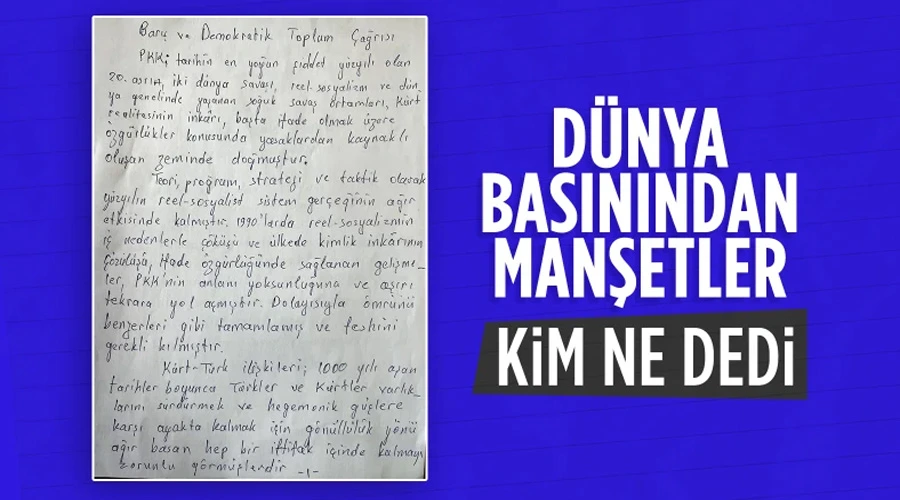 Barış ve Demokratik Toplum Çağrısı
PKK; tarihin en yoğun şiddet yüzyılı olan
20. asrın, iki dünya savaşı, reel-sosyalizm ve dün-
ya genelinde yaşanan soğuk savaş ortamları, Kürt
realitesinin inkârı, başta ifade olmak üzere
özgürlükler konusunda yasaklardan kaynaklı
oluşan zeminde doğmuştur.
Teori, program, strateji ve taktik olarak
yüzyılın reel-sosyalist sistem gerçeğinin ağır
etkisinde kalmıştır. 1990'larda reel-sosyalizmin
iç nedenlerle çöküşü ve ülkede kimlik inkârının
çözülüşü, ifade özgürlüğünde sağlanan gelişme-
ler, PKK'nin anlam yoksunluğuna ve aşırı
tekrara yol açmıştır. Dolayısıyla ömrünü
benzerleri gibi tamamlamış ve feshini
gerekli kılmıştır.
Kürt-Türk ilişkileri; 1000 yılı aşan
tarihler boyunca Türkler ve Kürtler varlık-
larını sürdürmek ve hegemonik güçlere
karşı ayakta kalmak için gönüllülük yönü
ağır basan hep bir ittifak içinde kalmayı
zorunlu görmüşlerdir -1-
DÜNYA
BASININDAN
MANŞETLER
KİM NE DEDİ